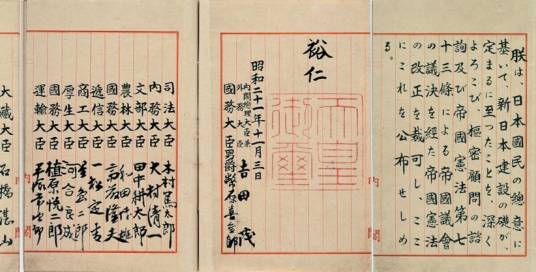 朕は、日本國民の總意に
基いて、新日本建設の礎が、
定まるに至つたことを、深く
よろこび、樞密顧問の諮
詢及び帝國憲法第七
十三條による帝國議會
の議決を経た帝國憲法
の改正を裁可し、ここ
にこれを公布せしめ
る。
裕仁
天皇御璽
昭和二十一年十一月三日
內閣總理大臣兼
外務大臣 吉田茂
國務大臣 男爵幣原喜重郎
司法大臣 木村篤太郎
內務大臣 大村清一
文部大臣 田中耕太郎
農林大臣 和田博雄
國務大臣 斎藤隆夫
遞信大臣 一松定吉
商工大臣 星島二郎
厚生大臣 河合良成
國務大臣 植原悦二郎
運輸大臣 平塚常次郎
大藏大臣 石橋湛山
內閣
內閣